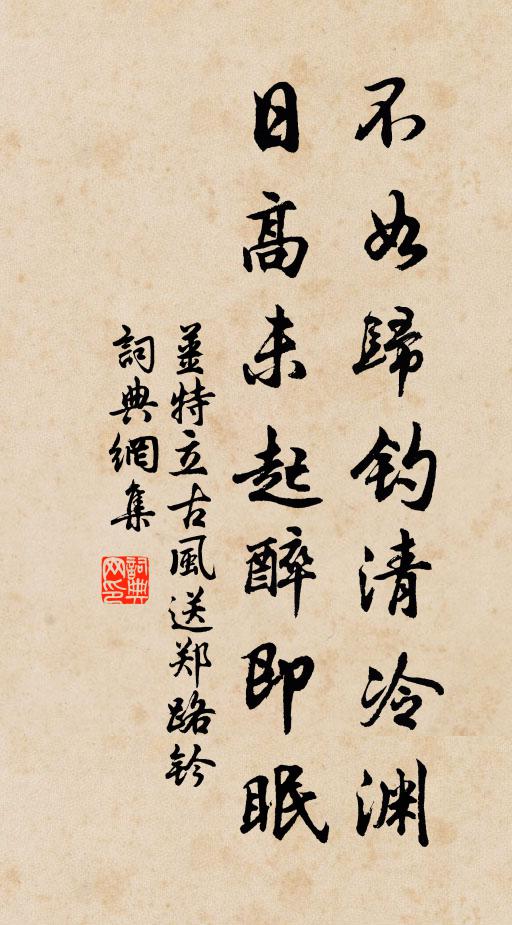 不如歸钓清冷渊
日高未起醉即眠
姜特立古風送郑路钤
詞典網集
詞典网印